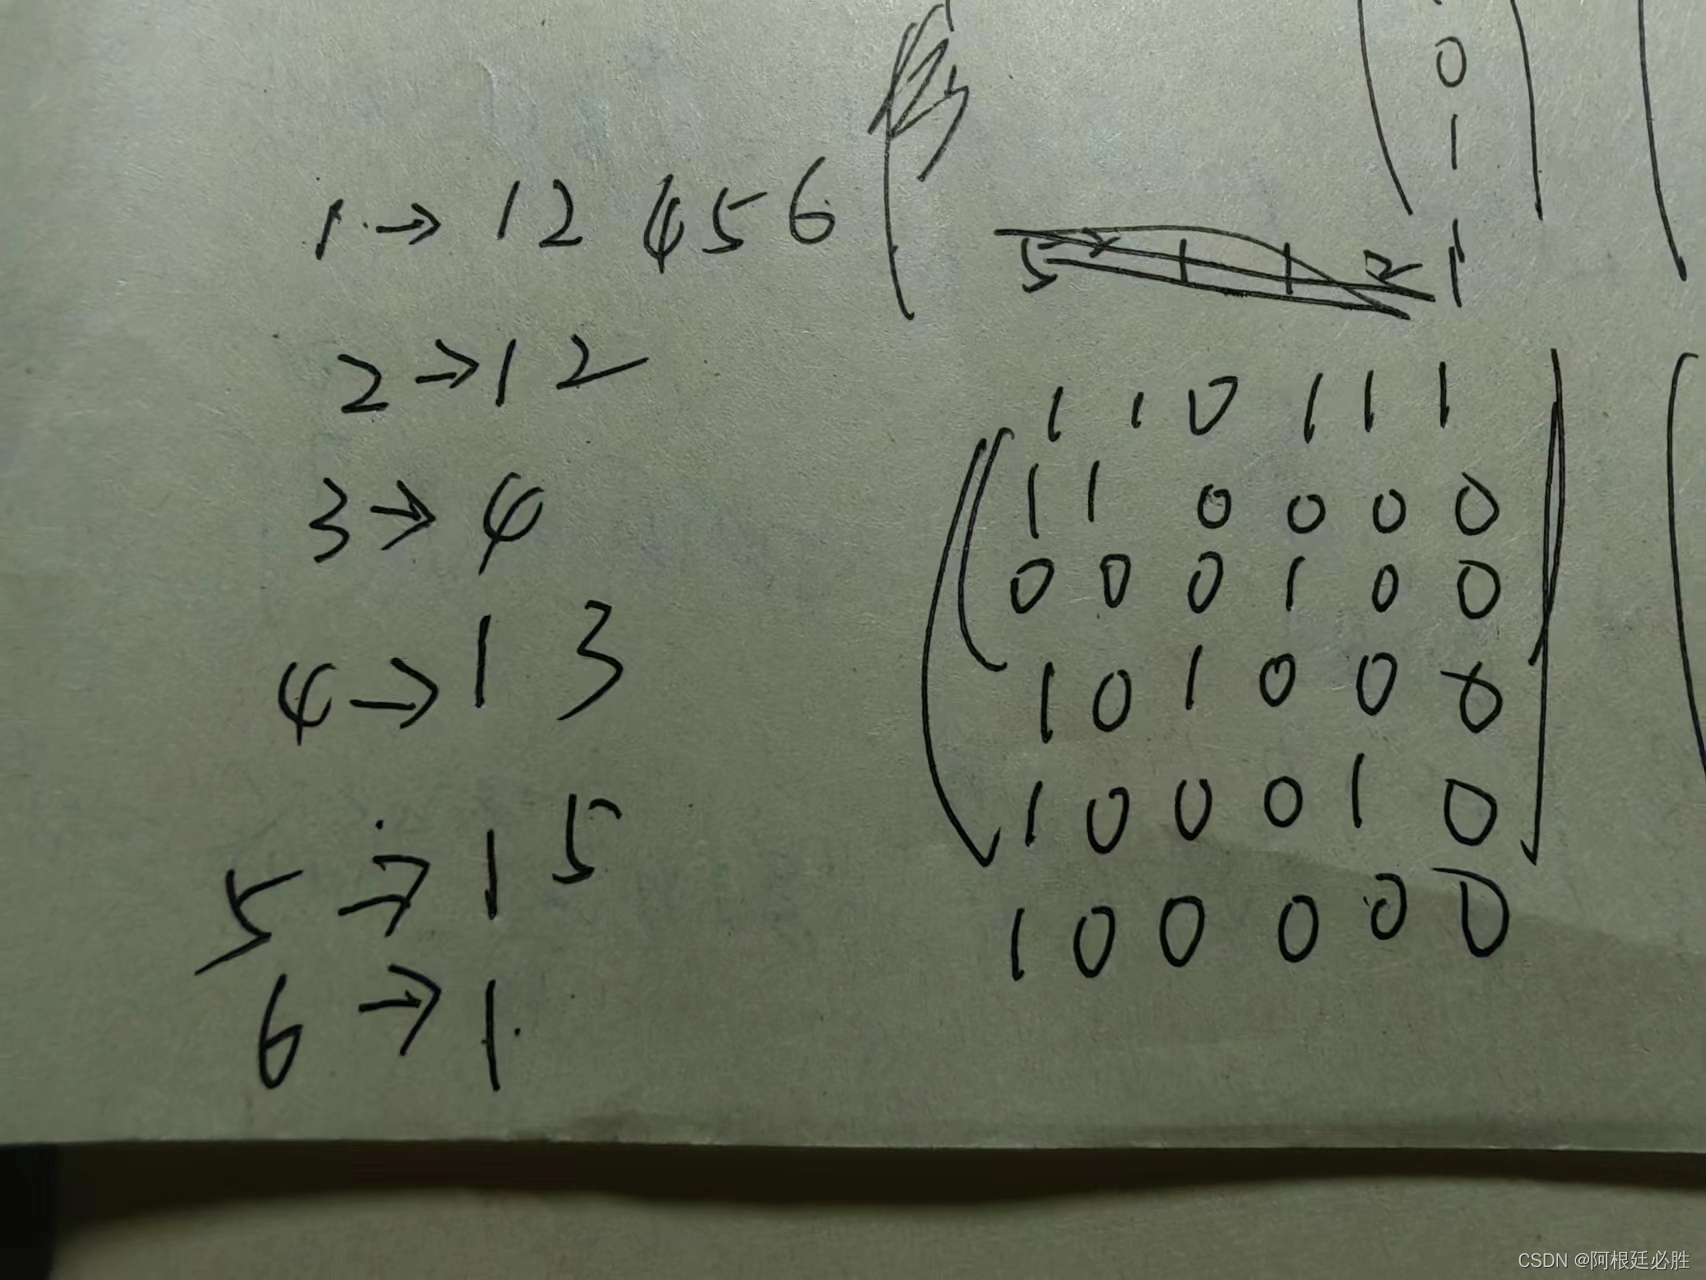 0
1
1
1 → 1 2 4 5 6
5 1 1 2 1
2 → 1 2
1 1 0 1 1 1
3 → 4
1 1 0 0 0 0
0 0 0 1 0 0
4 → 1 3
1 0 1 0 0 0
5 → 1 5
1 0 0 0 1 0
6 → 1
1 0 0 0 0 0
CSDN @阿根廷必胜